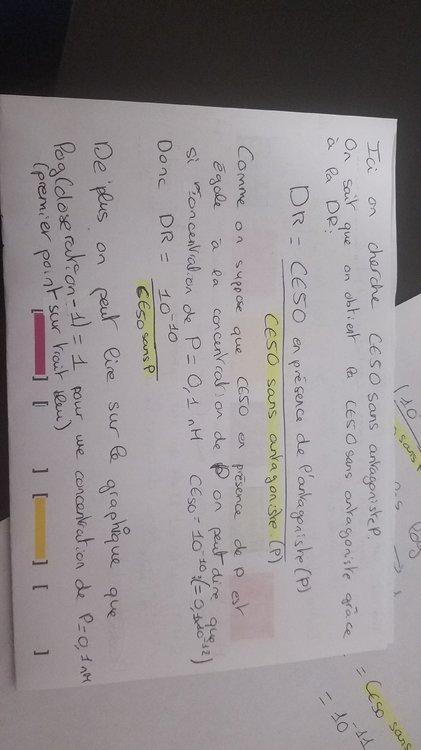 Ici on cherche CE50 sans antagoniste P.
On sait que on obtient la CE50 sans antagoniste grâce
à la DR:
DR = CE50 en présence de l'antagoniste (P)
CE50 sans antagoniste (P)
Comme on suppose que CE50 en présence de p est
égale à la concentration de P on peut dire que
si concentration de P = 0,1 nM CE50 = 10^-10
Donc DR = 10^-10
CE50 sans P
De plus on peut lire sur le graphique que
log(dose ration - 1) = 1 pour une concentration de P = 0,1 nM
(premier point sur trait bleu)
] [ ] [ ]
(10
sans P
log
= CE50 sans
= 10^-11